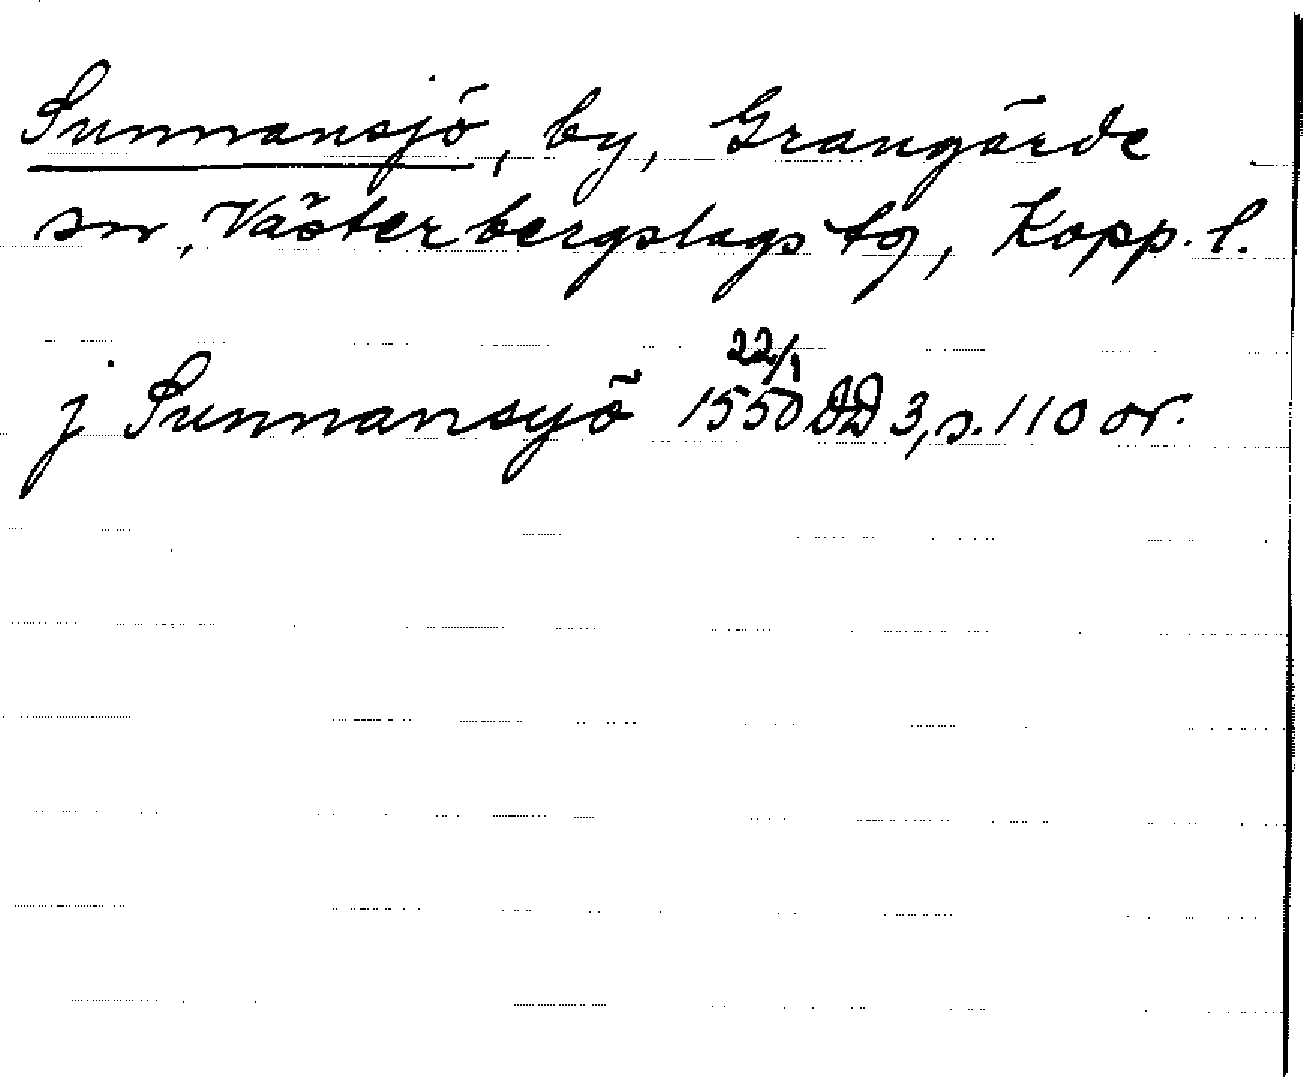 Sunnansjö, by, Grangärde
sn, Västerbergslags tg, Kopp. l.
j Sunnansyö 22/1 1550 DD 3, s. 110 or.